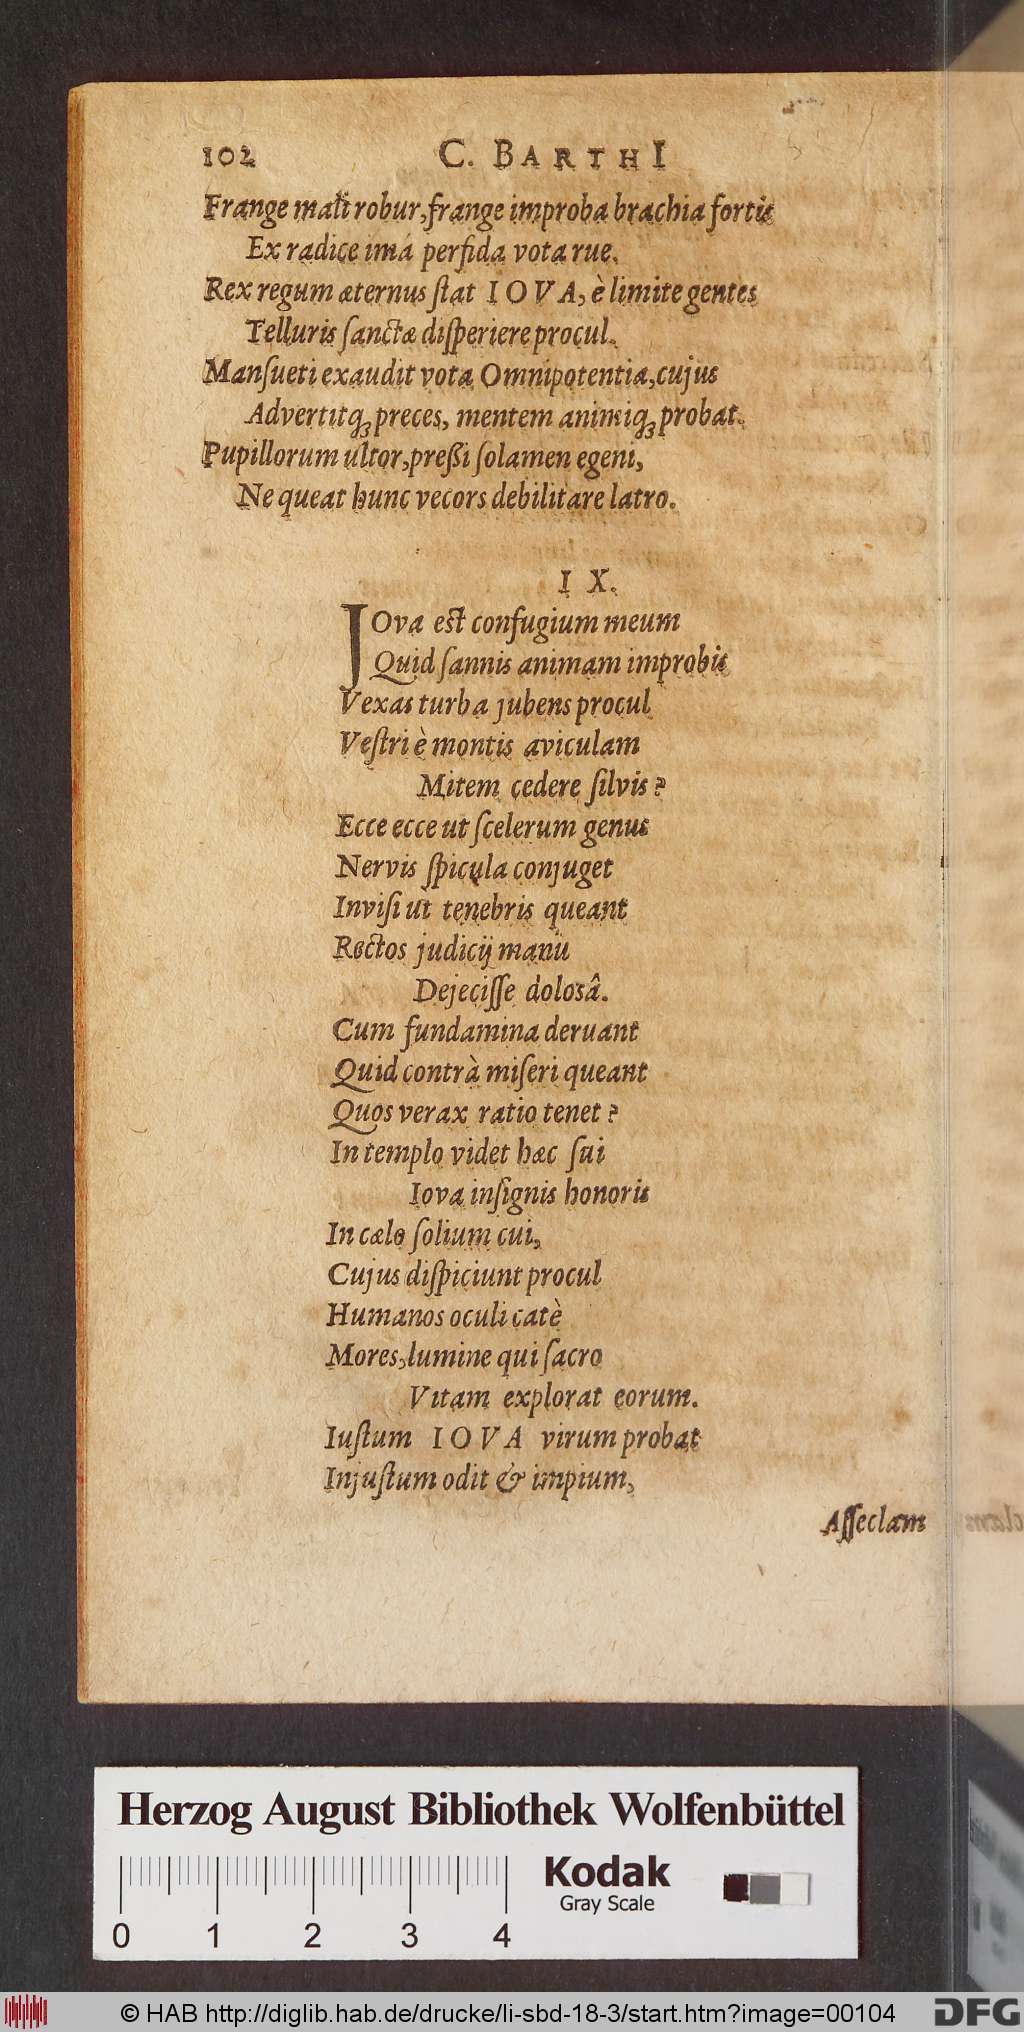 102 C. BARTHI
Frange mali robur, frange improba brachia fortis
Ex radice imá perfida vota rue.
Rex regum æternus ſtat IOVA, è limite gentes
Telluris ſanctæ diſperiere procul.
Manſueti exaudit vota Omnipotentia, cujus
Advertitq; preces, mentem animiq; probat.
Pupillorum ultor, preßi ſolamen egeni,
Ne queat hunc vecors debilitare latro.
IX.
IOva est confugium meum
Quid ſannis animam improbis
Vexas turba jubens procul
Veſtri è montis aviculam
Mitem cedere ſilvis?
Ecce ecce ut ſcelerum genus
Nervis ſpicula conjuget
Inviſi ut tenebris queant
Rectos judicij manu
Dejeciſſe dolosâ.
Cum fundamina deruant
Quid contrà miſeri queant
Quos verax ratio tenet?
In templo videt hæc ſui
Iova inſignis honoris
In cælo ſolium cui,
Cujus diſpiciunt procul
Humanos oculi catè
Mores, lumine qui ſacro
Vitam explorat eorum.
Iuſtum IOVA virum probat
Injuſtum odit & impium,
Aſſeclam
Herzog August Bibliothek Wolfenbüttel
Kodak
Gray Scale
0 1 2 3 4
© HAB http://diglib.hab.de/drucke/li-sbd-18-3/start.htm?image=00104
DFG